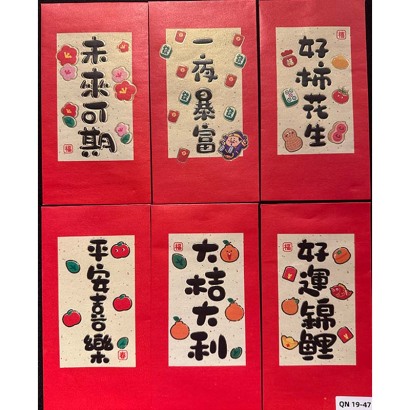 未來可期
福
一夜暴富
福
好柿花生
平安喜樂
春
福
大桔大利
福
好運錦鯉
QN 19-47